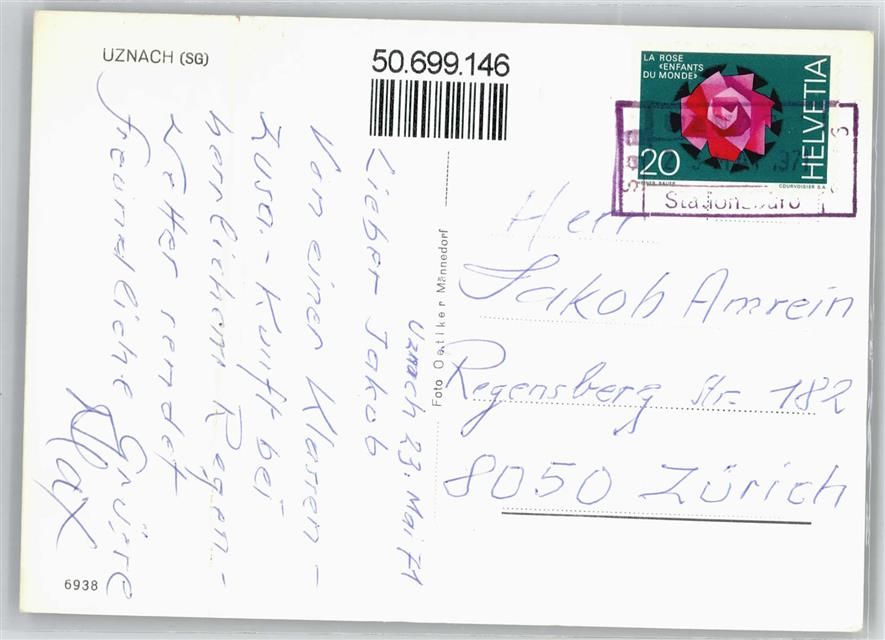 UZNACH (SG)
50.699.146
LA ROSE
«ENFANTS
DU MONDE»
HELVETIA
20
COURVOISIER S.A.
Stationsbüro
Uznach 23. Mai 71
Lieber Jakob
Von einer Klassen-
Zusa.-Kunft bei
herrlichem Regen-
Wetter sendet
freundliche Grüsse
Max
Foto Oetiker Männedorf
Herr
Jakob Amrein
Regensberg Str. 182
8050 Zürich
6938